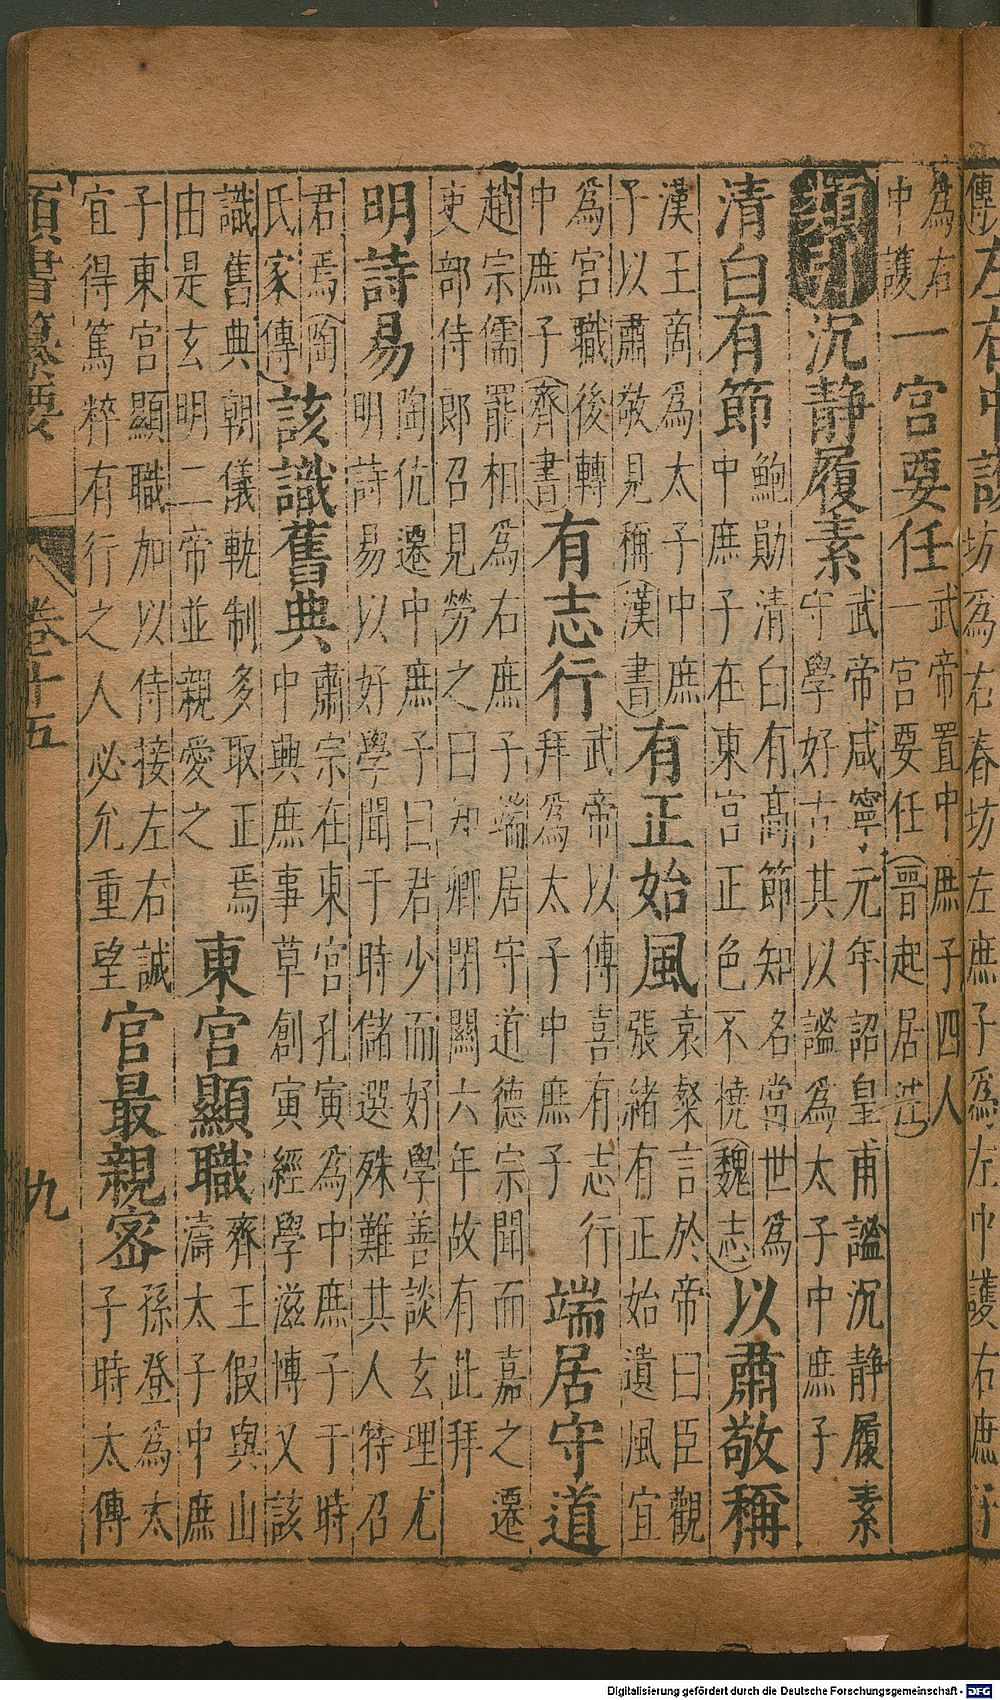 傳)左右中護 坊為右春坊左庶子為左中護右庶
為右
中護
一宮要任
武帝置中庶子四人
一宮要任(晉起居注)
沉静履素
武帝咸寧元年詔皇甫謐沉静履素
守學好古其以謐為太子中庶子
清白有節
鮑勛清白有高節知名當世為
中庶子在東宮正色不撓(魏志)
以肅敬稱
漢王商為太子中庶
子以肅敬見稱(漢書)
有正始風
袁粲言於帝曰臣觀
張緒有正始遺風宜
為宮職後轉
中庶子(齊書)
有志行
武帝以傅喜有志行
拜為太子中庶子
端居守道
趙宗儒罷相為右庶子端居守道德宗聞而嘉之遷
吏部侍郎召見勞之曰知卿閉關六年故有此拜
明詩易
陶伉遷中庶子曰君少而好學善談玄理尤
明詩易以好學聞于時儲選殊難其人特召
君焉(陶
氏家傳)
該識舊典
肅宗在東宮孔寅為中庶子于時
中興庶事草創寅經學滋博又該
識舊典朝儀軌制多取正焉
由是玄明二帝並親愛之
東宮顯職
齊王假與山
濤太子中庶
子東宮顯職加以侍接左右誠
宜得篤粹有行之人必允重望
官最親密
孫登為太
子時太傅
類書纂要 卷十五 九
Digitalisierung gefördert durch die Deutsche Forschungsgemeinschaft - DFG